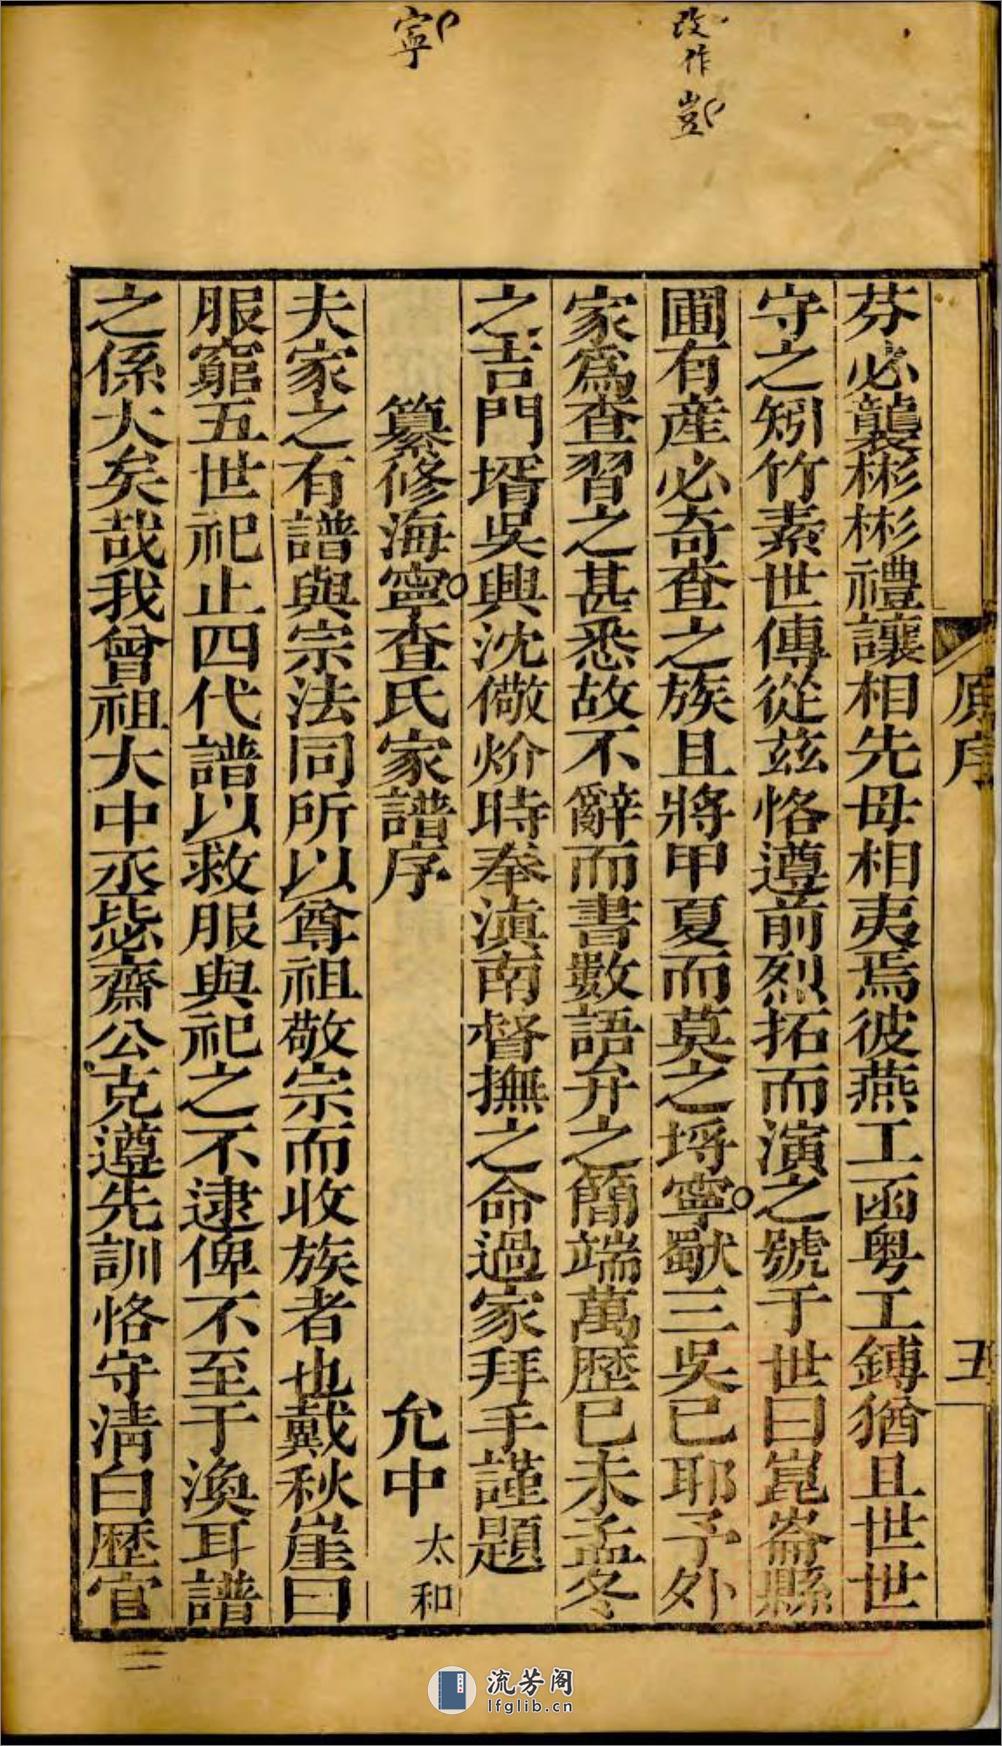 改作豈
寧
原序
五
芬必襲彬彬禮讓相先毋相夷焉彼燕工函粤工鎛猶且世世
守之矧竹素世傳從兹恪遵前烈拓而演之號于世曰崑崙縣
圃有産必奇查之族且將甲夏而莫之埒寧獨三吳已耶予外
家爲查習之甚悉故不辭而書數語弁之簡端萬歷巳未孟冬
之吉門壻吳興沈儆炌時奉滇南督撫之命過家拜手謹題
纂修海寧查氏家譜序
允中太和
夫家之有譜與宗法同所以尊祖敬宗而收族者也戴秋崖曰
服窮五世祀止四代譜以救服與祀之不逮俾不至于渙耳譜
之係大矣哉我曾祖大中丞毖齋公克遵先訓恪守淸白歷官
二
流芳阁
lfglib.cn